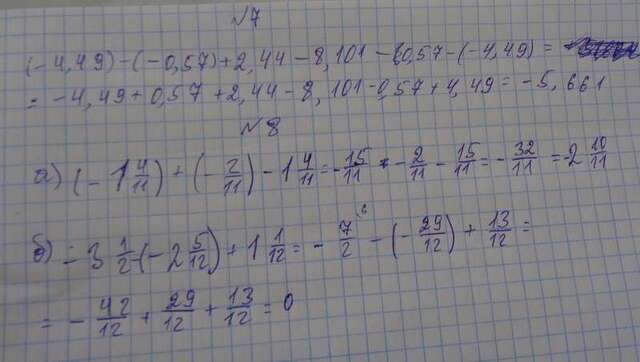 №7
(-4,49)-(-0,57)+2,44-8,101-0,57-(-4,49)=
=-4,49+0,57+2,44-8,101-0,57+4,49=-5,661
№8
а) (-1 4/11)+(-2/11)-1 4/11=-15/11-2/11-15/11=-32/11=-2 10/11
б) -3 1/2-(-2 5/12)+1 1/12=-7/2-(-29/12)+13/12=
=-42/12+29/12+13/12=0